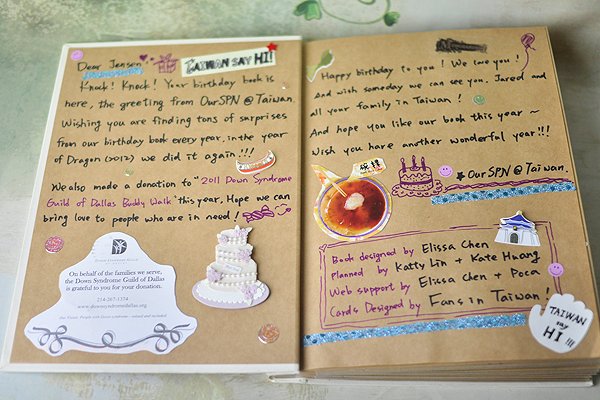 Dear Jensen
TAIWAN SAY HI!
Knock! Knock! Your birthday book is
here, the greeting from OurSPN @ Taiwan.
Wishing you are finding tons of surprises
from our birthday book every year, in the year
of Dragon (2012) we did it again!!!
We also made a donation to "2011 Down Syndrome
Guild of Dallas Buddy Walk" this year. Hope we can
bring love to people who are in need!
On behalf of the families we serve,
the Down Syndrome Guild of Dallas
is grateful to you for your donation.
214-267-1374
www.downsyndromedallas.org
Happy birthday to you! We love you!
And wish someday we can see you, Jared and
all your family in Taiwan!
And hope you like our book this year~
Wish you have another wonderful year!!!
OurSPN @ Taiwan.
祝禱
Book designed by Elissa Chen
Planned by Katty Lin + Kate Huang
Web support by Elissa Chen + Poca
Cards Designed by Fans in Taiwan!
TAIWAN
say
HI!!!